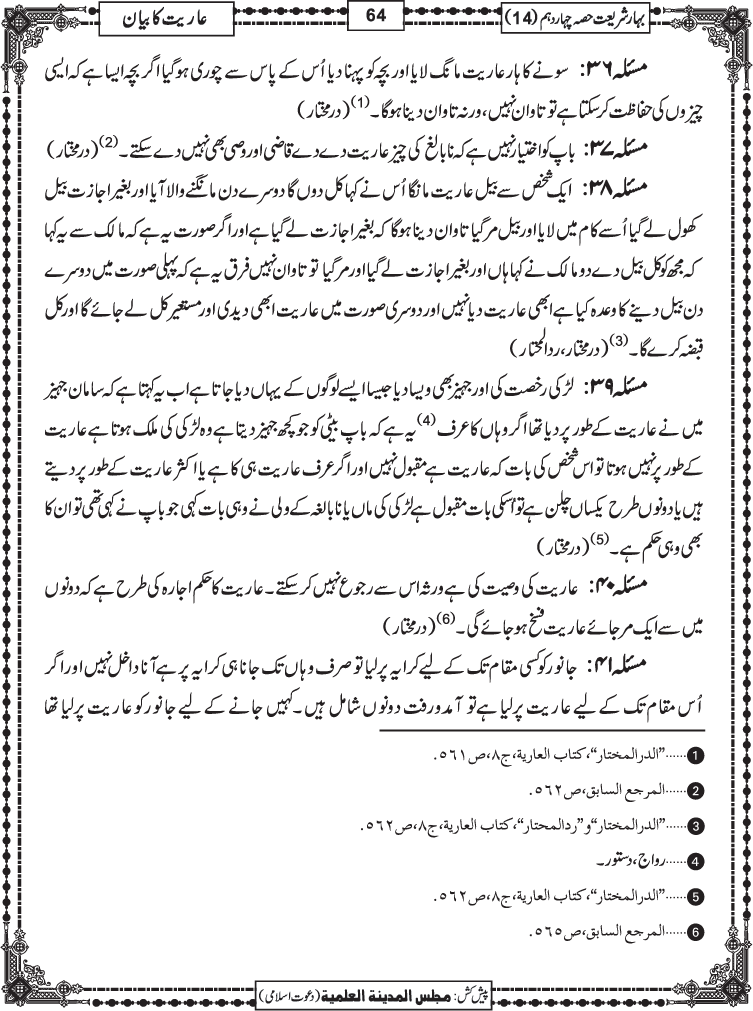 بہار شریعت حصہ چہاردہم (14)
64
عاریت کا بیان
مسئلہ ۳۶: سونے کا ہار عاریت مانگ لایا اور بچہ کو پہنا دیا اُس کے پاس سے چوری ہوگیا اگر بچہ ایسا ہے کہ ایسی
چیزوں کی حفاظت کرسکتا ہے تو تاوان نہیں، ورنہ تاوان دینا ہوگا۔(1) (درمختار)
مسئلہ ۳۷: باپ کو اختیار نہیں ہے کہ نابالغ کی چیز عاریت دے دے قاضی اور وصی بھی نہیں دے سکتے۔(2) (درمختار)
مسئلہ ۳۸: ایک شخص سے بیل عاریت مانگا اُس نے کہا کل دوں گا دوسرے دن مانگنے والا آیا اور بغیر اجازت بیل
کھول لے گیا اُسے کام میں لایا اور بیل مرگیا تاوان دینا ہوگا کہ بغیر اجازت لے گیا ہے اور اگر صورت یہ ہے کہ مالک سے یہ کہا
کہ مجھ کو کل بیل دے دو مالک نے کہا ہاں اور بغیر اجازت لے گیا اور مرگیا تو تاوان نہیں فرق یہ ہے کہ پہلی صورت میں دوسرے
دن بیل دینے کا وعدہ کیا ہے ابھی عاریت دیا نہیں اور دوسری صورت میں عاریت ابھی دیدی اور مستعیر کل لے جائے گا اور کل
قبضہ کرے گا۔(3) (درمختار، ردالمحتار)
مسئلہ ۳۹: لڑکی رخصت کی اور جہیز بھی ویسا دیا جیسا ایسے لوگوں کے یہاں دیا جاتا ہے اب یہ کہتا ہے کہ سامان جہیز
میں نے عاریت کے طور پر دیا تھا اگر وہاں کا عرف(4) یہ ہے کہ باپ بیٹی کو جو کچھ جہیز دیتا ہے وہ لڑکی کی ملک ہوتا ہے عاریت
کے طور پر نہیں ہوتا تو اس شخص کی بات کہ عاریت ہے مقبول نہیں اور اگر عرف عاریت ہی کا ہے یا اکثر عاریت کے طور پر دیتے
ہیں یا دونوں طرح یکساں چلن ہے تو اُسکی بات مقبول ہے لڑکی کی ماں یا نابالغہ کے ولی نے وہی بات کہی جو باپ نے کہی تھی تو ان کا
بھی وہی حکم ہے۔(5) (درمختار)
مسئلہ ۴۰: عاریت کی وصیت کی ہے ورثہ اس سے رجوع نہیں کرسکتے۔ عاریت کا حکم اجارہ کی طرح ہے کہ دونوں
میں سے ایک مرجائے عاریت فسخ ہوجائے گی۔(6) (درمختار)
مسئلہ ۴۱: جانور کو کسی مقام تک کے لیے کرایہ پر لیا تو صرف وہاں تک جانا ہی کرایہ پر ہے آنا داخل نہیں اور اگر
اُس مقام تک کے لیے عاریت پر لیا ہے تو آمدورفت دونوں شامل ہیں۔ کہیں جانے کے لیے جانور کو عاریت پر لیا تھا
1......"الدرالمختار"، کتاب العارية، ج٨، ص٥٦١.
2......المرجع السابق، ص٥٦٢.
3......"الدرالمختار" و"ردالمحتار"، کتاب العارية، ج٨، ص٥٦٢.
4......رواج، دستور۔
5......"الدرالمختار"، کتاب العارية، ج٨، ص٥٦٢.
6......المرجع السابق، ص٥٦٥.
پیش کش: مجلس المدينة العلمية (دعوت اسلامی)